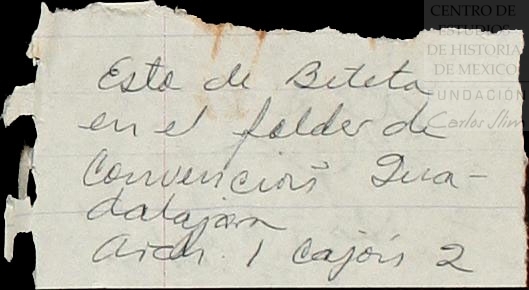 CENTRO DE
ESTUDIOS
DE HISTORIA
DE MEXICO
FUNDACIÓN
Carlos Slim
Esto de Beteta
en el folder de
Convención Gua-
dalajara
Arch. 1 cajón 2